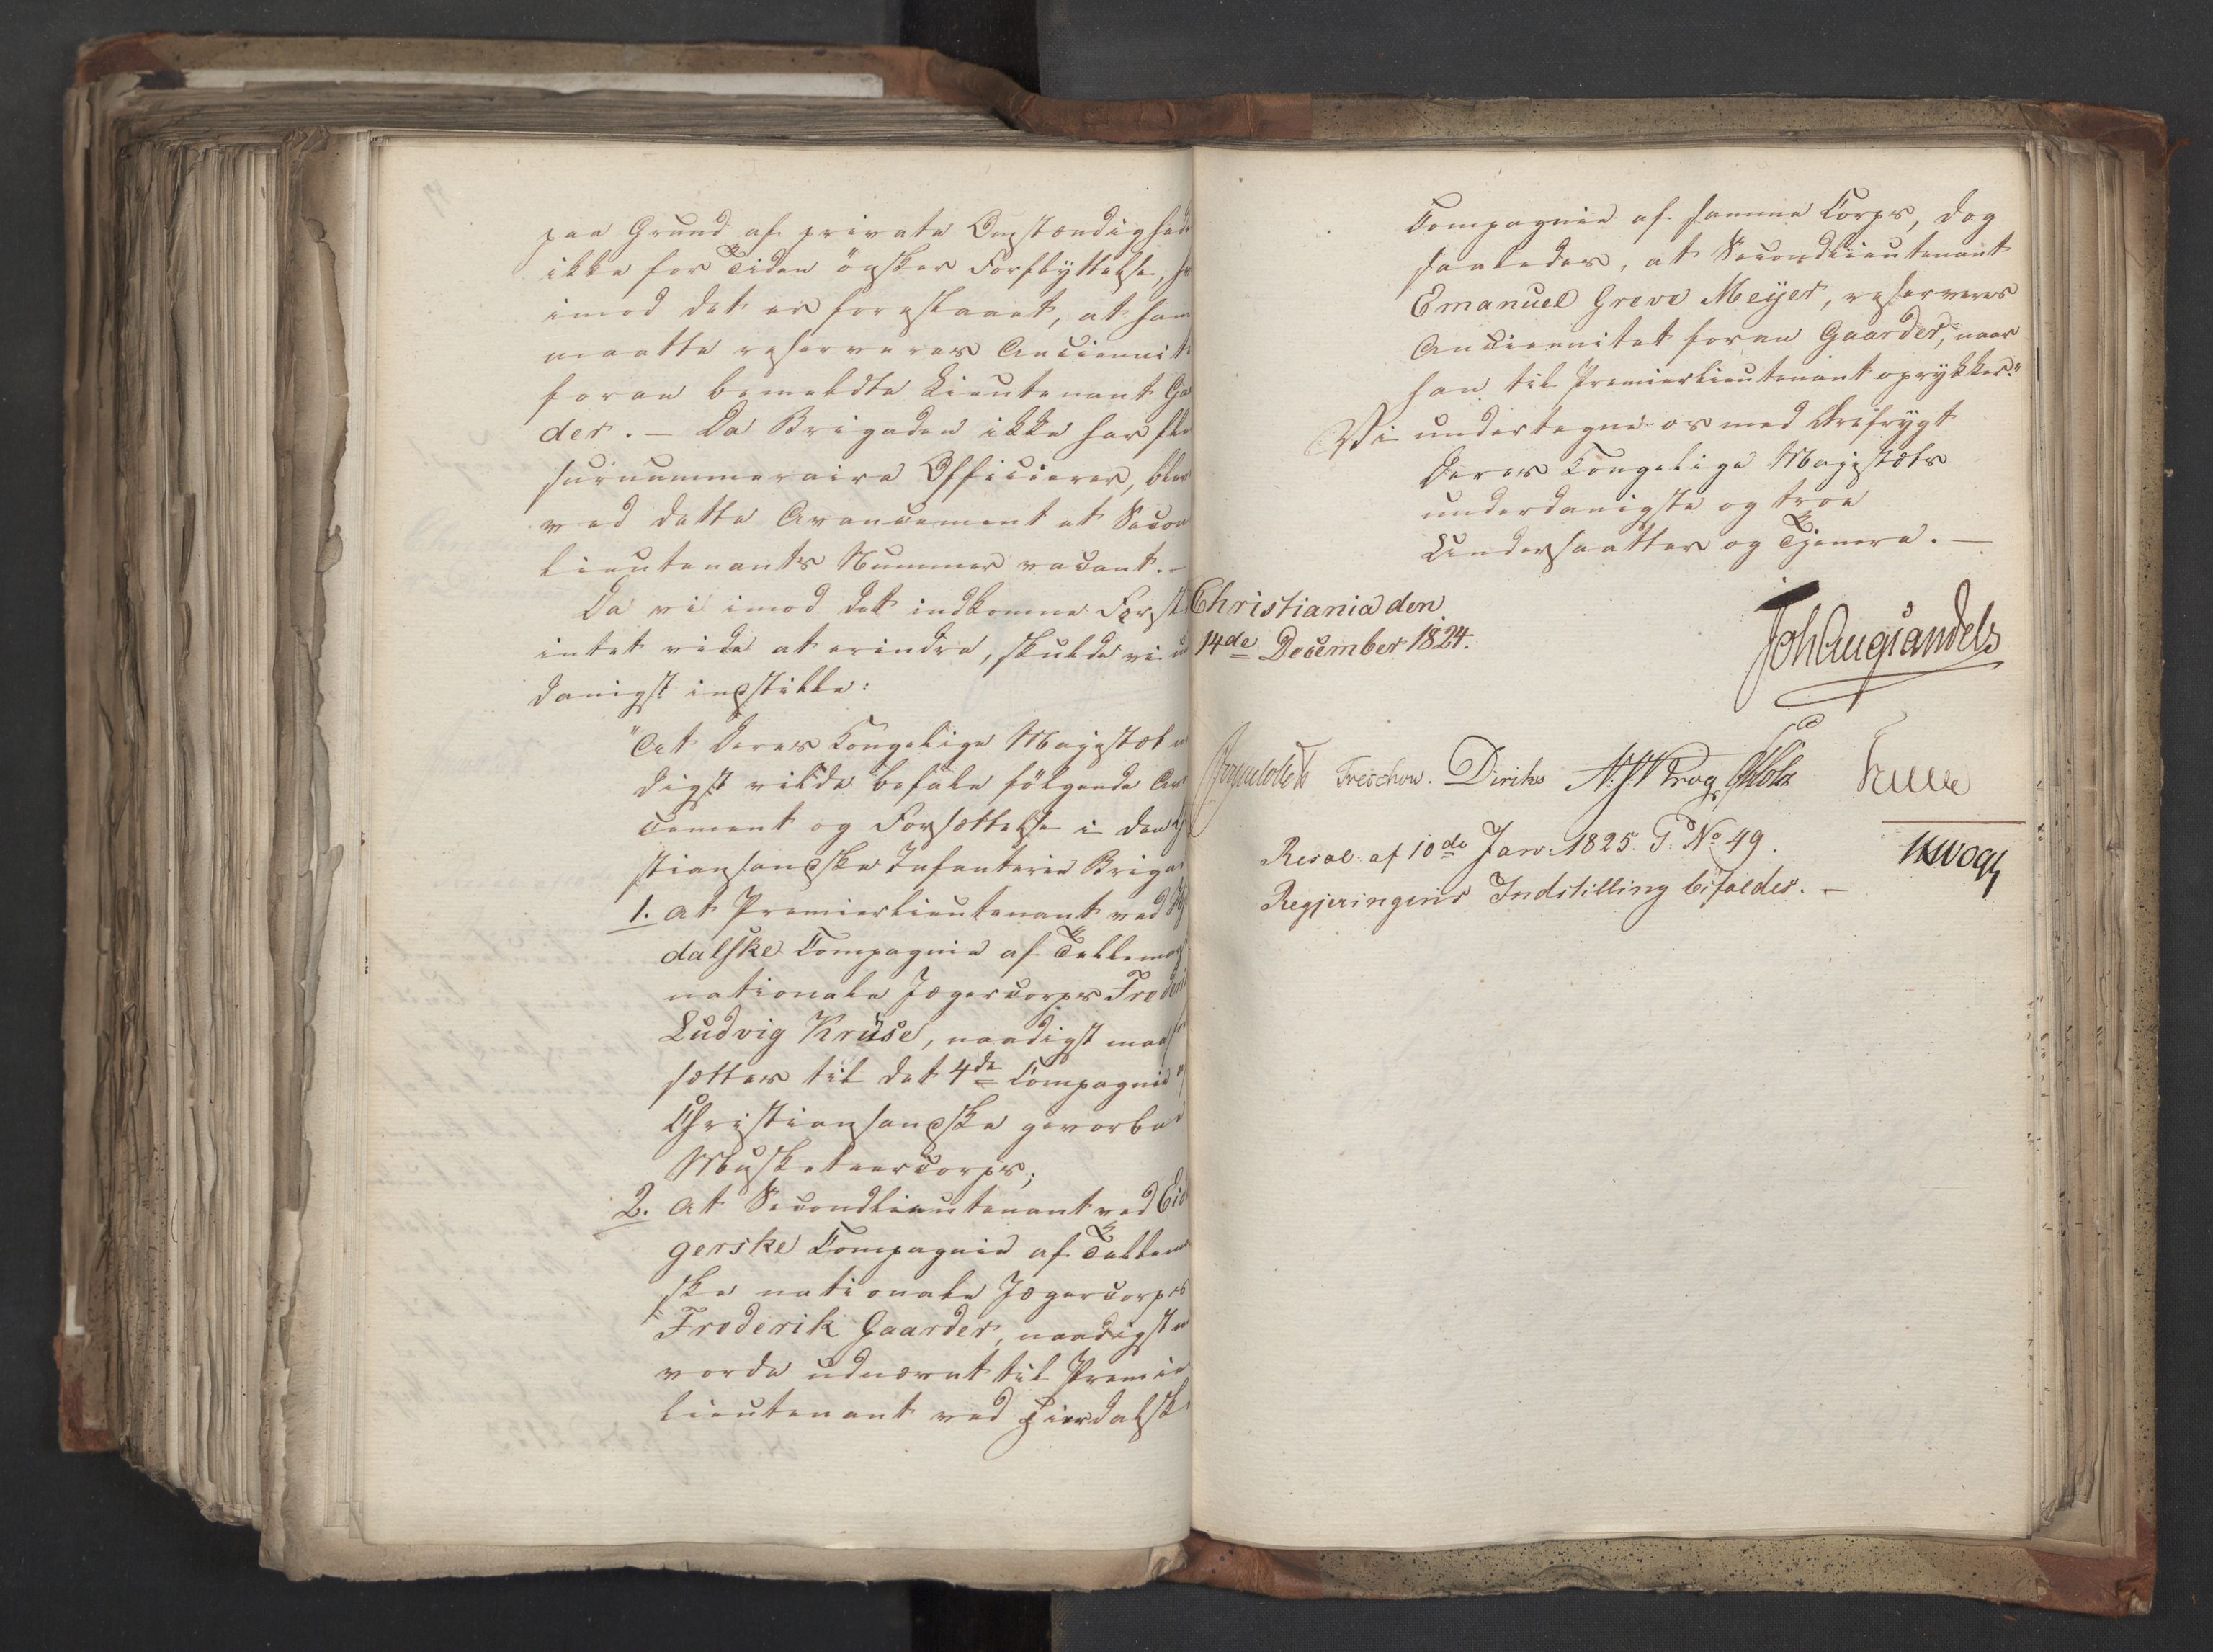 paa Grund af private Omstændighed
ikke for Tiden ønsker Forflyttelse, h
imod det er foreslaaet, at ham
maatte reserveres Anciennite
foran bemeldte Lieutenant Gaa
der. — Da Brigaden ikke har fle
surnummeraire Officierer, bliv
ved dette Avancement et Secon
Lieutenants Nummer vacant. —
Da vi imod det indkomne Forsl
intet vide at erindre, skulde vi u
danigst indstille:
"At Deres Kongelige Majestæt n
digst vilde befale følgende Av
cement og Forsættelse i den
stiansandske Infanterie Briga
1. at Premierlieutenant ved
dalske Compagnie af Tellemar
nationale Jægercorps Frederi
Ludvig Kruse, naadigst maa
sættes til det 4de Compagnie
Christiansandske gevorbne
Musketeercorps;
2. at Secondlieutenant ved Eid
gerske Compagnie af Tellem
ske nationale Jægercorps
Frederik Gaarder, naadigst m
vorde udnævnt til Premier
lieutenant ved Hierdalske
Compagnie af samme Corps, dog
saaledes, at Secondlieutenant
Emanuel Greve Meyer, reserveres
Anciennitet foran Gaarder, naar
han til Premierlieutenant oprykker."
Vi undertegne os med Ærefrygt
Deres Kongelige Majestæts
underdanigste og troe
Undersaatter og Tjenere. —
Christiania den
14de December 1824.
Joh Aug Sandels
Treschow. Diriks
Resol: af 10de Jan: 1825. P. No 49.
Regjeringens Indstilling bifaldes. —